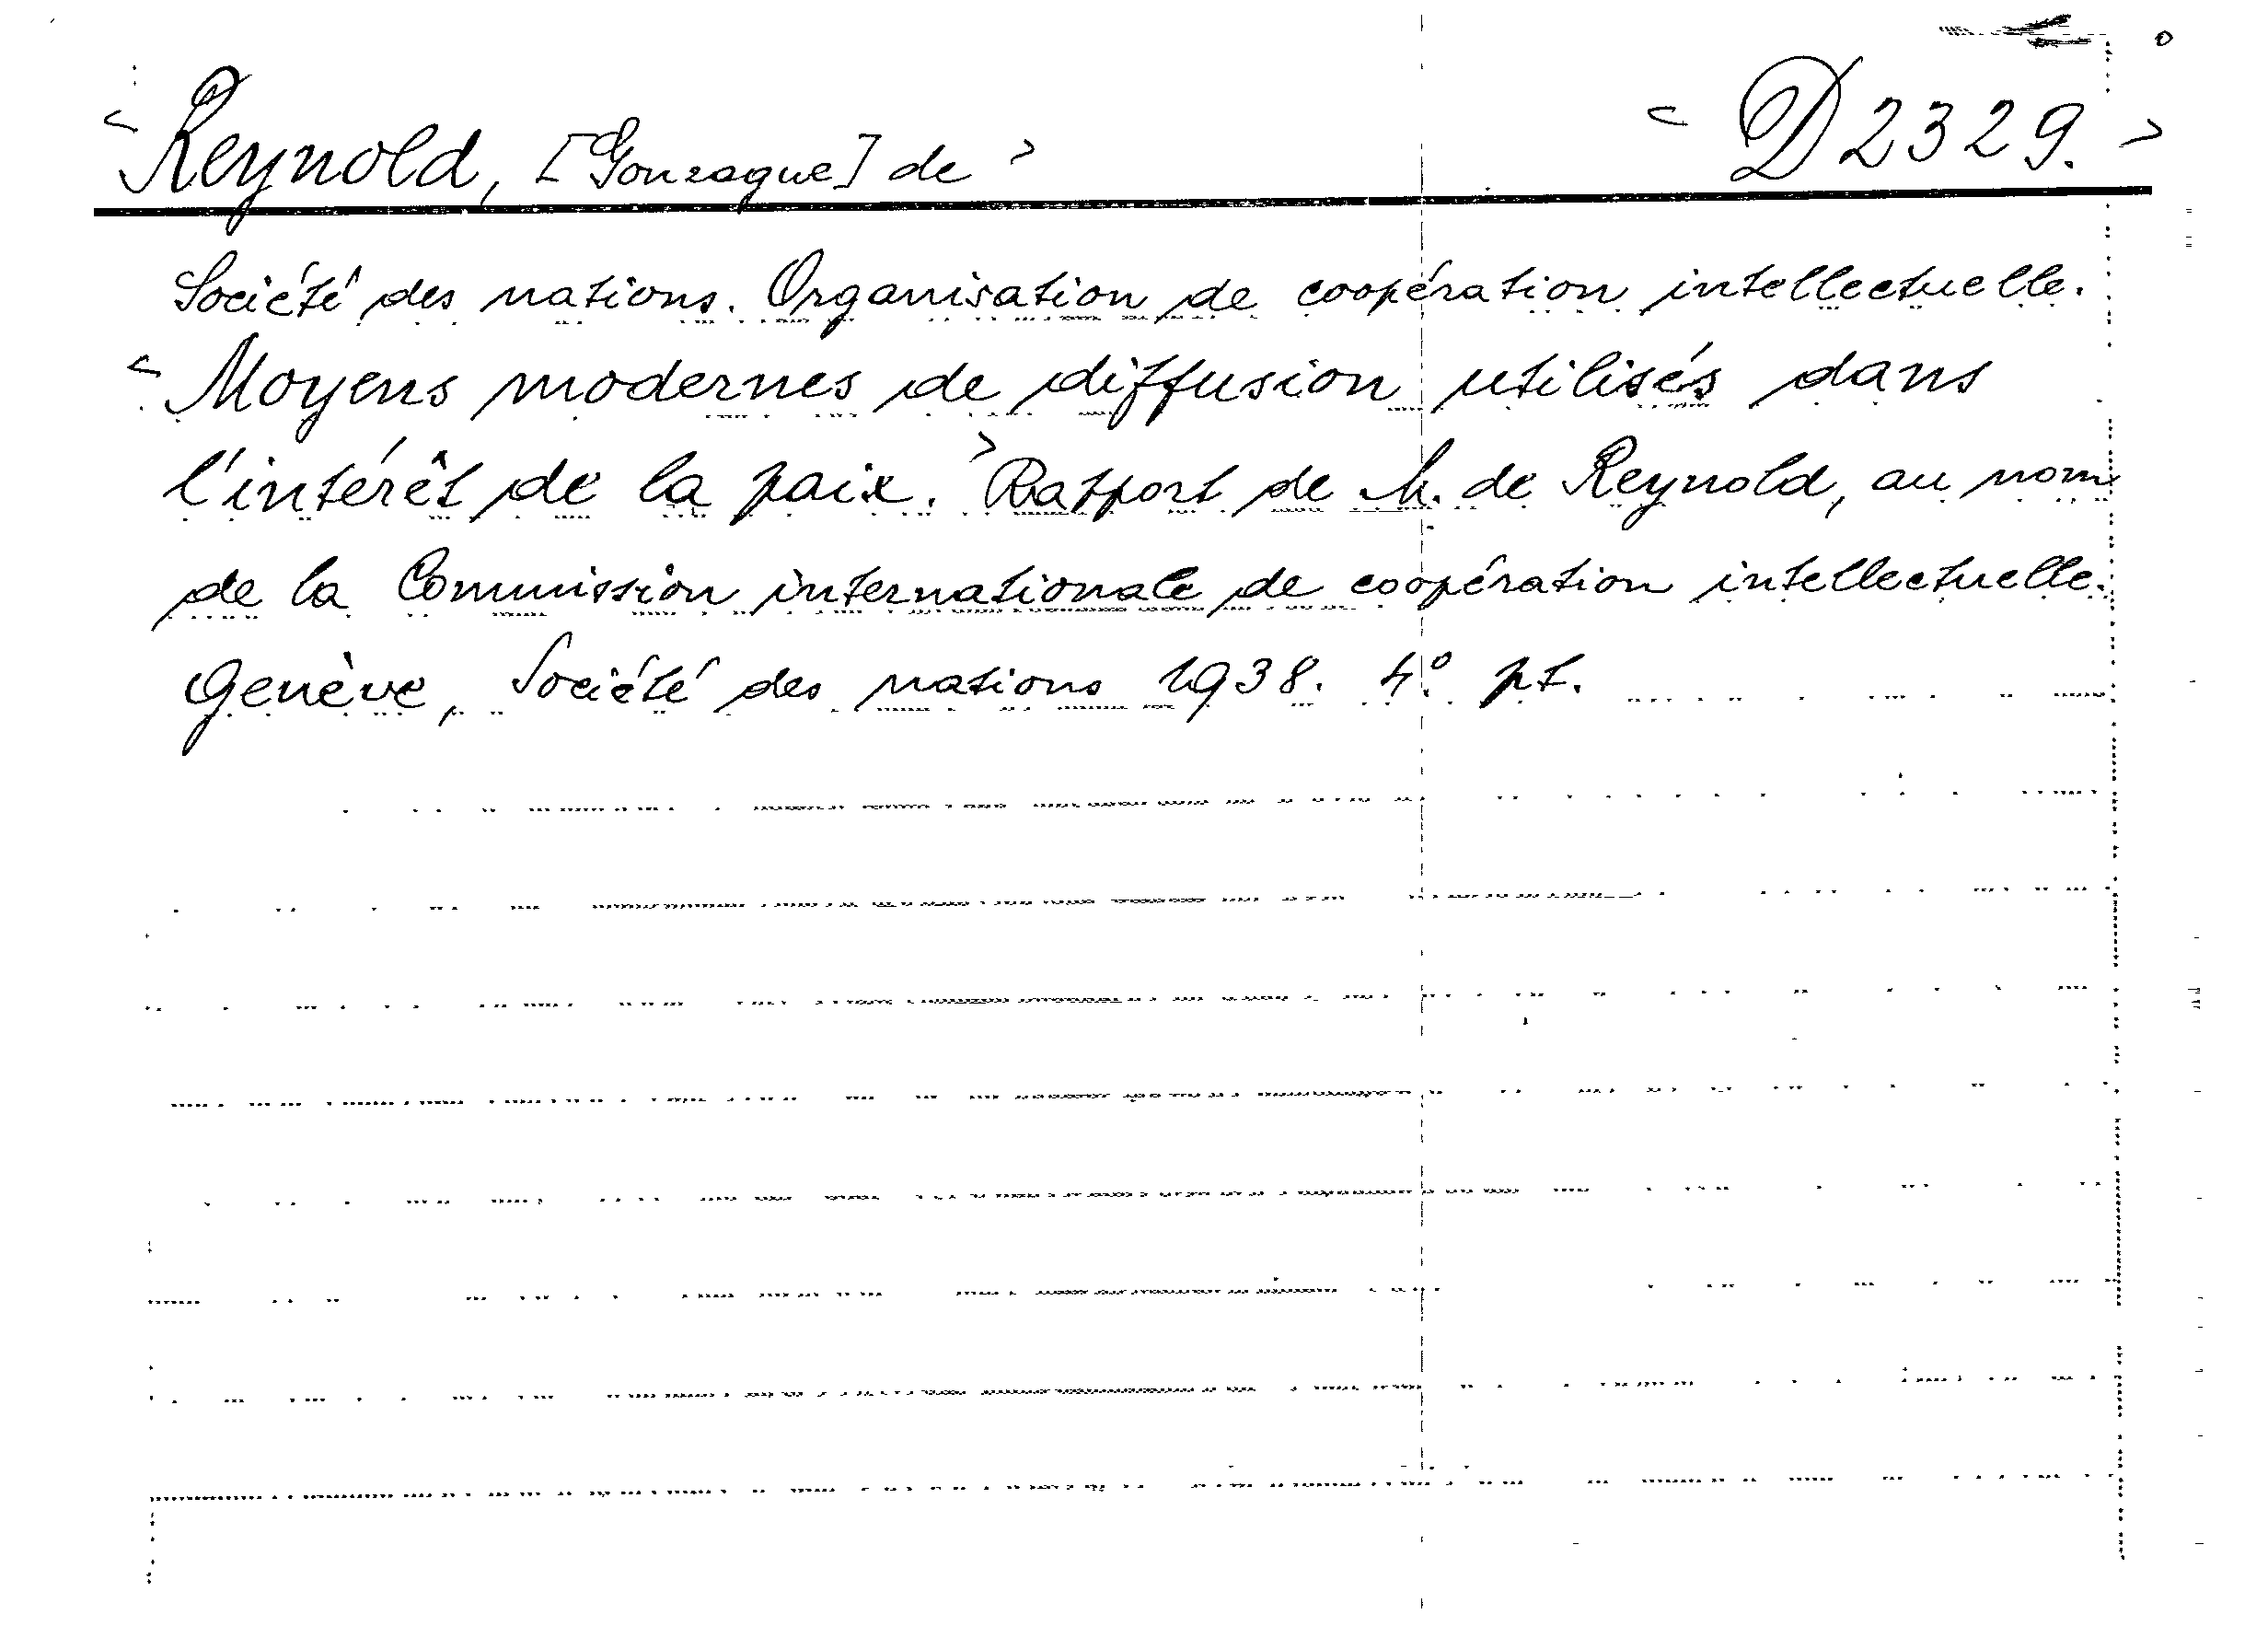 <Reynold, [Gonzague] de> <D 2329.>
Société des nations. Organisation de coopération intellectuelle.
<Moyens modernes de diffusion utilisés dans
l'intérêt de la paix.> Rapport de M. de Reynold, au nom
de la Commission internationale de coopération intellectuelle.
Genève, Société des nations 1938. 4°. pt.